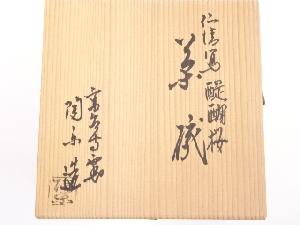 仁清写 醍醐桜
茶碗
高台寺窯
陶楽造